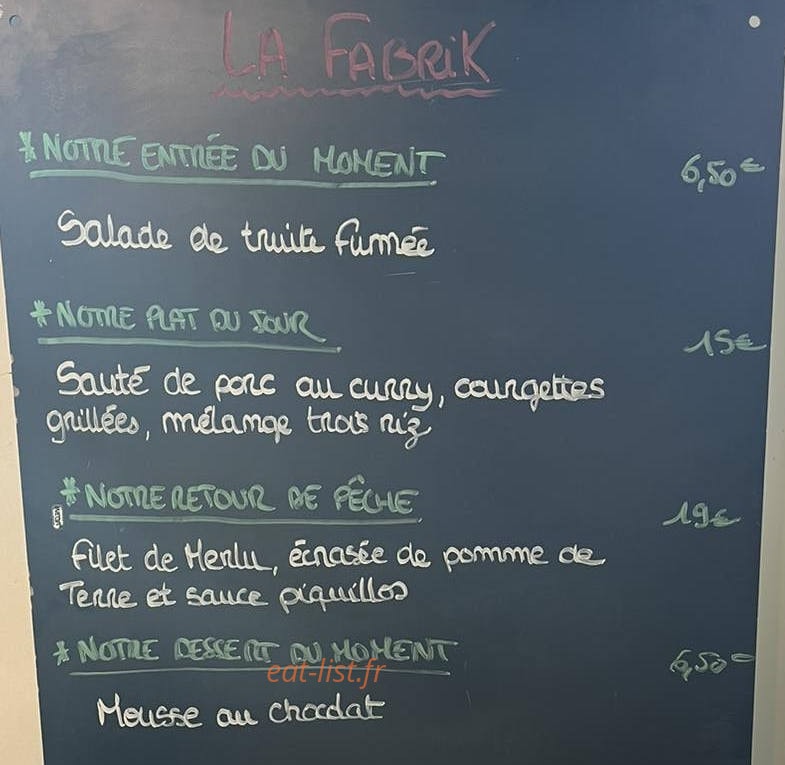 LA FABRiK
*NOTRE ENTRÉE DU MOMENT 6,50€
Salade de truite fumée
*NOTRE PLAT DU JOUR 15€
Sauté de porc au curry, courgettes
grillées, mélange trois riz
*NOTRE RETOUR DE PÊCHE 19€
Filet de Merlu, écrasée de pomme de
Terre et sauce piquillos
*NOTRE DESSERT DU MOMENT 6,50€
eat-list.fr
Mousse au chocolat